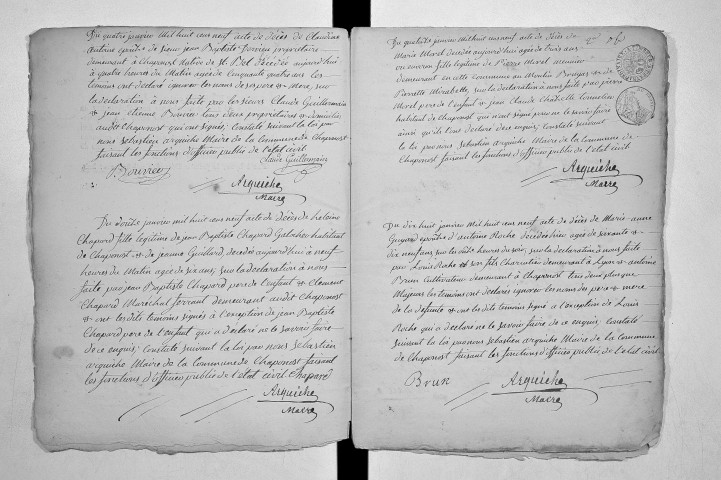 Du quatre janvier mil huit cens neuf acte de décès de Claudine
Antoine épouse de Sieur jean Baptiste propriétaire
demeurant à Chaponost native de St decedée aujourd'hui
à quatre heures du Matin agée de Cinquante quatre ans les
témoins ont déclaré ignorer les noms de sa pere & Mere, sur
la declaration à nous faite par les sieurs Claude Guillermain
& jean Etienne Bouvier tous deux propriétaires & domiciliés
audit Chaponost qui ont signés, Constaté suivant la loi par
nous Sébastien arquiche Maire de la Commune de Chaponost
faisant les fonctions d'officier public de l'etat civil
Claude Guillermain
Arquiche
Maire
Du janvier mil huit cens neuf acte de décès de heleine
Chapard fille legitime de jean Baptiste Chapard habitant
de Chaponost & de jeanne Guillard, decedée aujourd'hui à neuf
heures du Matin agée de six ans, sur la declaration à nous
faite par jean Baptiste Chapard pere de l'enfant & Clement
Chapard Maréchal ferrant demeurant audit Chaponost
& ont les dits témoins signés à l'exception de jean Baptiste
Chapard pere de l'enfant qui a déclaré ne le savoir faire
de ce enquis, Constaté suivant la loi par nous Sébastien
arquiche Maire de la Commune de Chaponost faisant
les fonctions d'officier public de l'etat civil. Chapard
Arquiche
Maire
Du janvier mil huit cens neuf acte de décès de
Marie Morel decedée aujourd'hui agée de trois ans
ou environ fille legitime de Pierre Morel Meunier
demeurant en cette commune au Moulin & de
Pierrette Mirabelle, sur la declaration à nous faite par pierre
Morel pere de l'enfant & jean Claude Tonnelier
habitant de Chaponost qui n'ont signé pour ne le savoir faire
ainsi qu'ils l'ont déclaré de ce enquis, Constaté suivant
la loi par nous Sébastien arquiche Maire de la commune de
Chaponost faisant les fonctions d'officier public de l'état civil
Arquiche
Maire
Du dix huit janvier Mil huit cens neuf acte de décès de Marie anne
Guyard épouse d'antoine Roche decedée hier agée de soixante &
dix neuf ans sur les heures du soir, sur la declaration à nous faite
par Louis Roche son fils Charpentier demeurant à Lyon & antoine
Brun Cultivateur demeurant à Chaponost tous deux plus que
Majeurs les témoins ont déclaré ignorer les noms des pere & mere
de la defunte & ont les dits témoins signé à l'exception de Louis
Roche qui a déclaré ne le savoir faire de ce enquis, Constaté
suivant la loi par nous Sébastien arquiche Maire de la Commune
de Chaponost faisant les fonctions d'officier public de l'etat civil
Brun
Arquiche
Maire